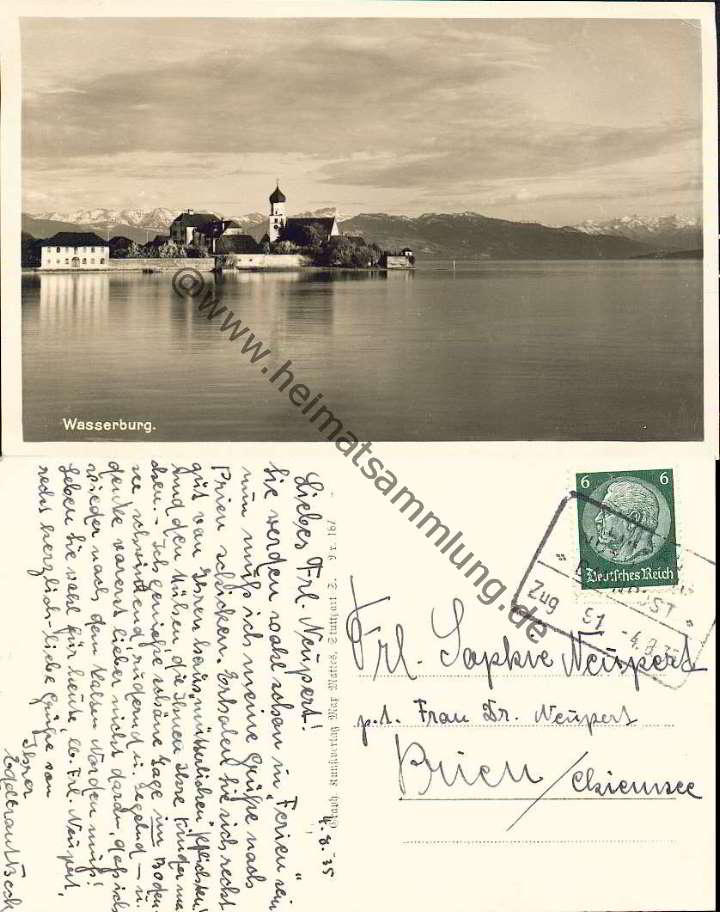 Wasserburg.
@www.heimatsammlung.de
4. 8. 35
Liebes Frl. Neupert!
Sie werden wohl schon in „Ferien“ sein
nun muß ich meine Grüße nach
Prien schicken. Erholen Sie sich recht
gut von Ihren hausmütterlichen Pflichten!
und den Mühen, die Ihnen Ihre Kinder ma
chen. – Ich genieße schöne Tage im Boden-
see, schwimmend, rudernd u. segelnd – u.
denke vorerst lieber nicht daran, daß ich
wieder nach dem kalten Norden muß!
Leben Sie wohl für heute, lb. Frl. Neupert,
recht herzlich-liebe Grüße von
Ihrer
Photogr. Kunstverlag Max Mattes, Stuttgart
6 6
Deutsches Reich
Zug
51
-4.8.35
Frl. Sophie Neupert
p.t. Frau Dr. Neupert
Prien / Chiemsee